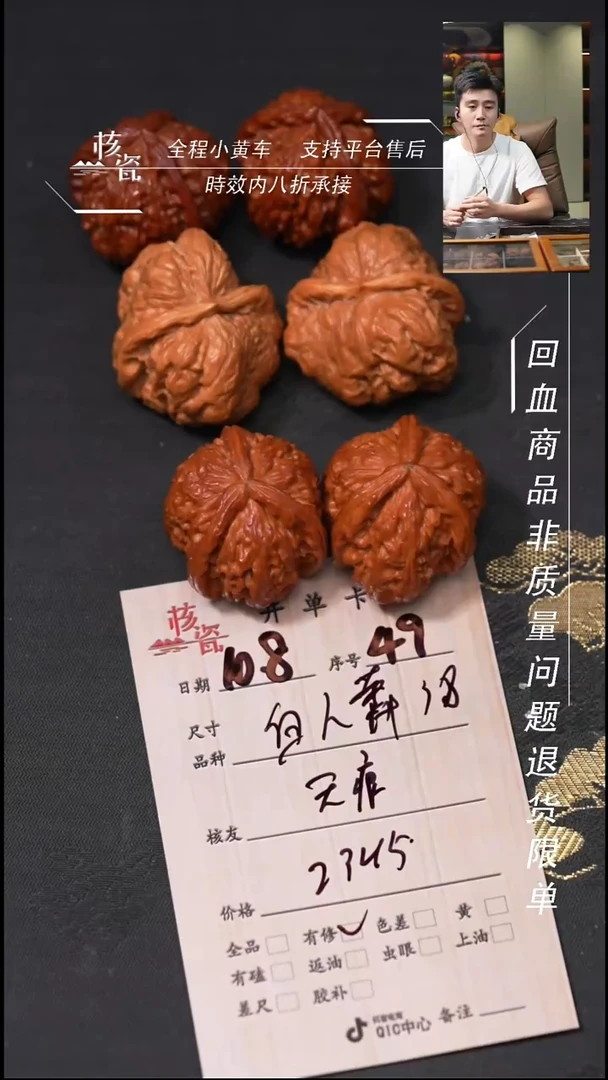 核瓷
全程小黄车 支持平台售后
時效内八折承接
回血商品非质量问题退货限单
核瓷
开单卡
日期 10.8 序号 49
尺寸
品种
核友
2345
价格
全品 有修 色差 黄
有磕 返油 虫眼 上油
差尺 胶补
抖音电商
QIC中心 备注